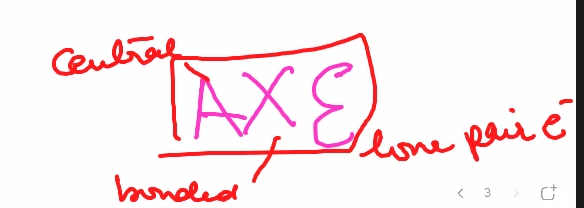 central
AXE
lone pair e⁻
bonded
3